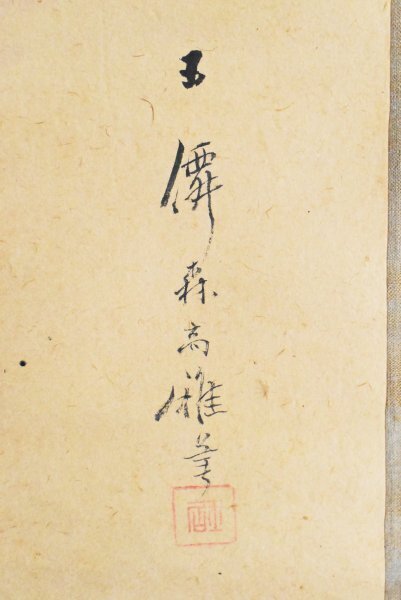 玉僊森高雅筆